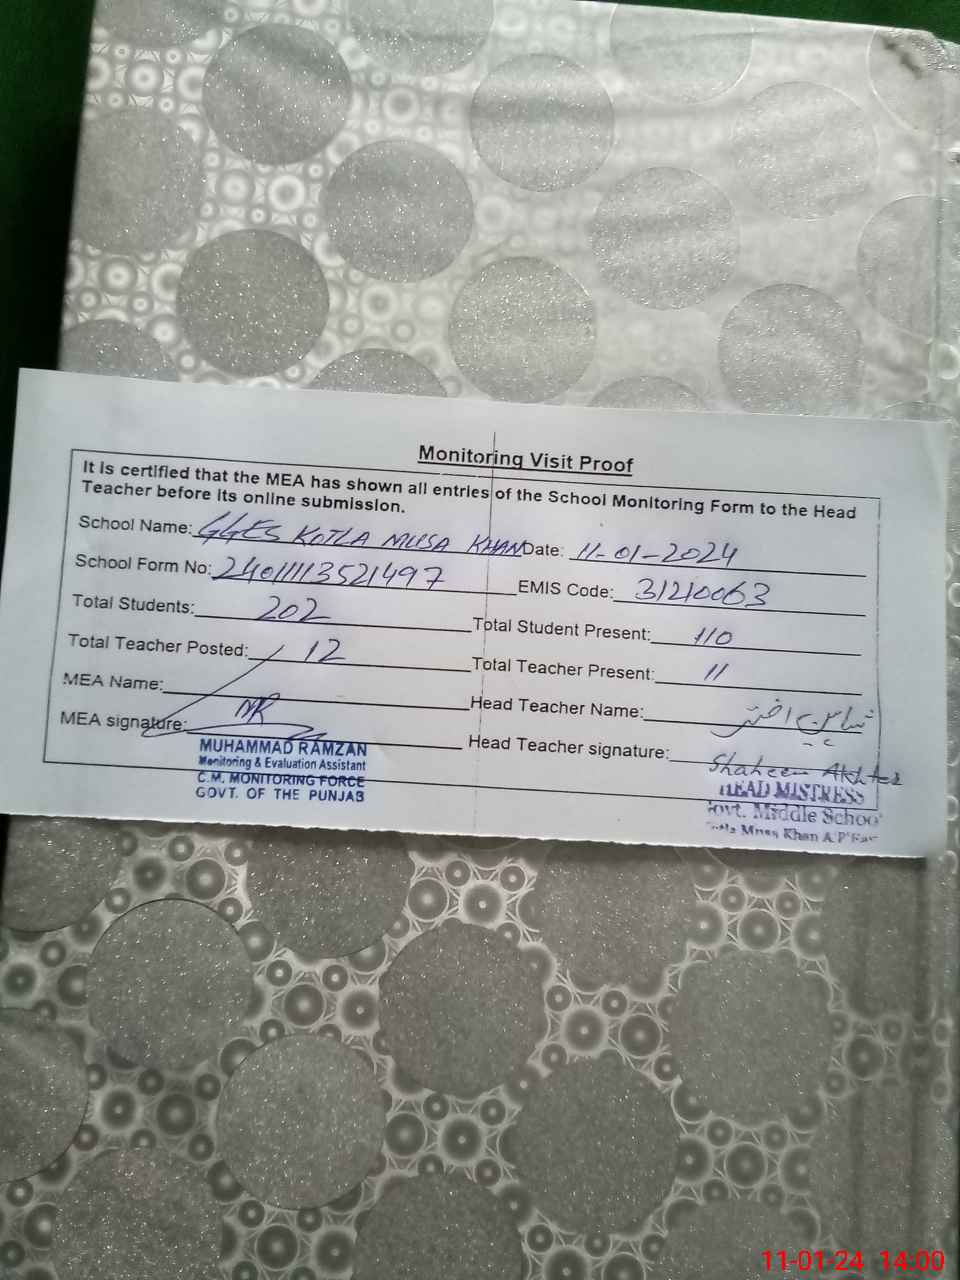 Monitoring Visit Proof
It is certified that the MEA has shown all entries of the School Monitoring Form to the Head
Teacher before its online submission.
School Name: GGES KOTLA MUSA KHAN Date: 11-01-2024
School Form No: 2401113521497 EMIS Code: 31210063
Total Students: 202 Total Student Present: 110
Total Teacher Posted: 12 Total Teacher Present: 11
MEA Name: Head Teacher Name: شاہین اختر
MEA signature: MR Head Teacher signature: Shaheen Akhter
MUHAMMAD RAMZAN
Monitoring & Evaluation Assistant
C.M. MONITORING FORCE
GOVT. OF THE PUNJAB
HEAD MISTRESS
Govt. Middle School
Musa Khan A.P
11-01-24 14:00